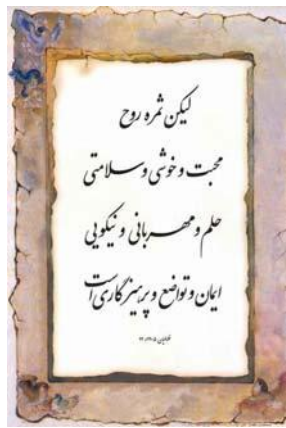 لیکن ثمره روح
محبت و خوشی و سلامتی
حلم و مهربانی و نیکویی
ایمان و تواضع و پرهیزگاری است